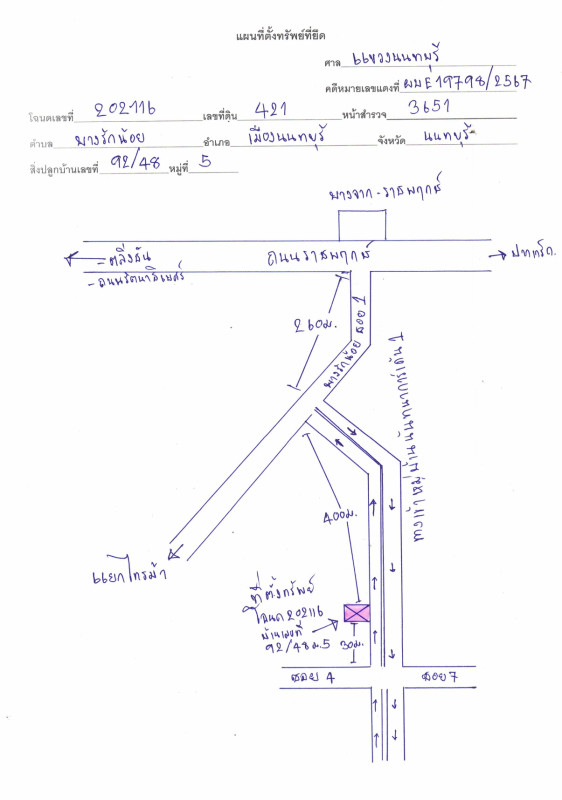 แผนที่ตั้งทรัพย์ที่ยึด
ศาล แขวงนนทบุรี
คดีหมายเลขแดงที่ ผบE19798/2567
โฉนดเลขที่ 202116 เลขที่ดิน 421 หน้าสำรวจ 3651
ตำบล บางรักน้อย อำเภอ เมืองนนทบุรี จังหวัด นนทบุรี
สิ่งปลูกบ้านเลขที่ 92/48 หมู่ที่ 5
บางจาก-ราชพฤกษ์
ถนนราชพฤกษ์
- ตลิ่งชัน
- ถนนรัตนาธิเบศร์
ปทุมธานี
260ม.
บางรักน้อย ซอย 1
400ม.
แยกไทรม้า
ที่ตั้งทรัพย์
โฉนด 202116
บ้านเลขที่
92/48 ม.5
30ม.
ซอย 4
ซอย 7